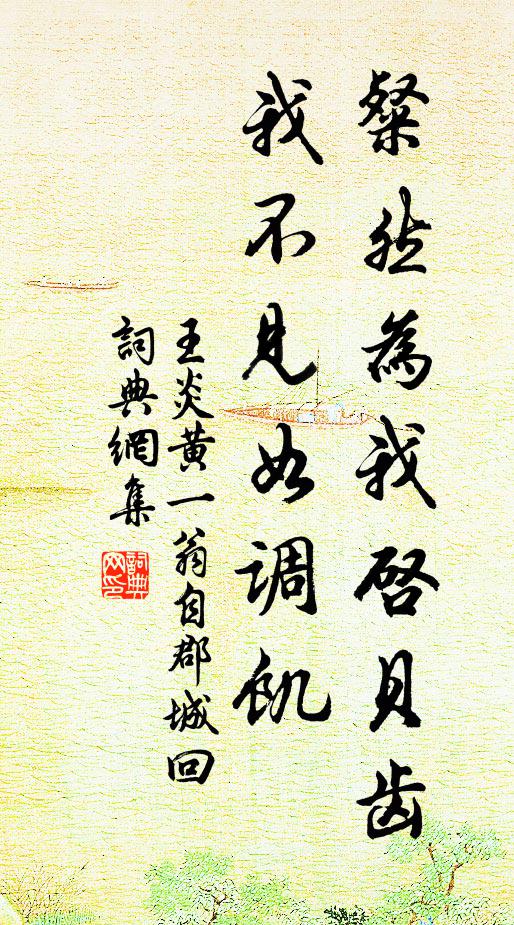 粲然為我啓貝齒
我不見如調飢
王炎黄一翁自郡城回
詞典網集
詞典
网印